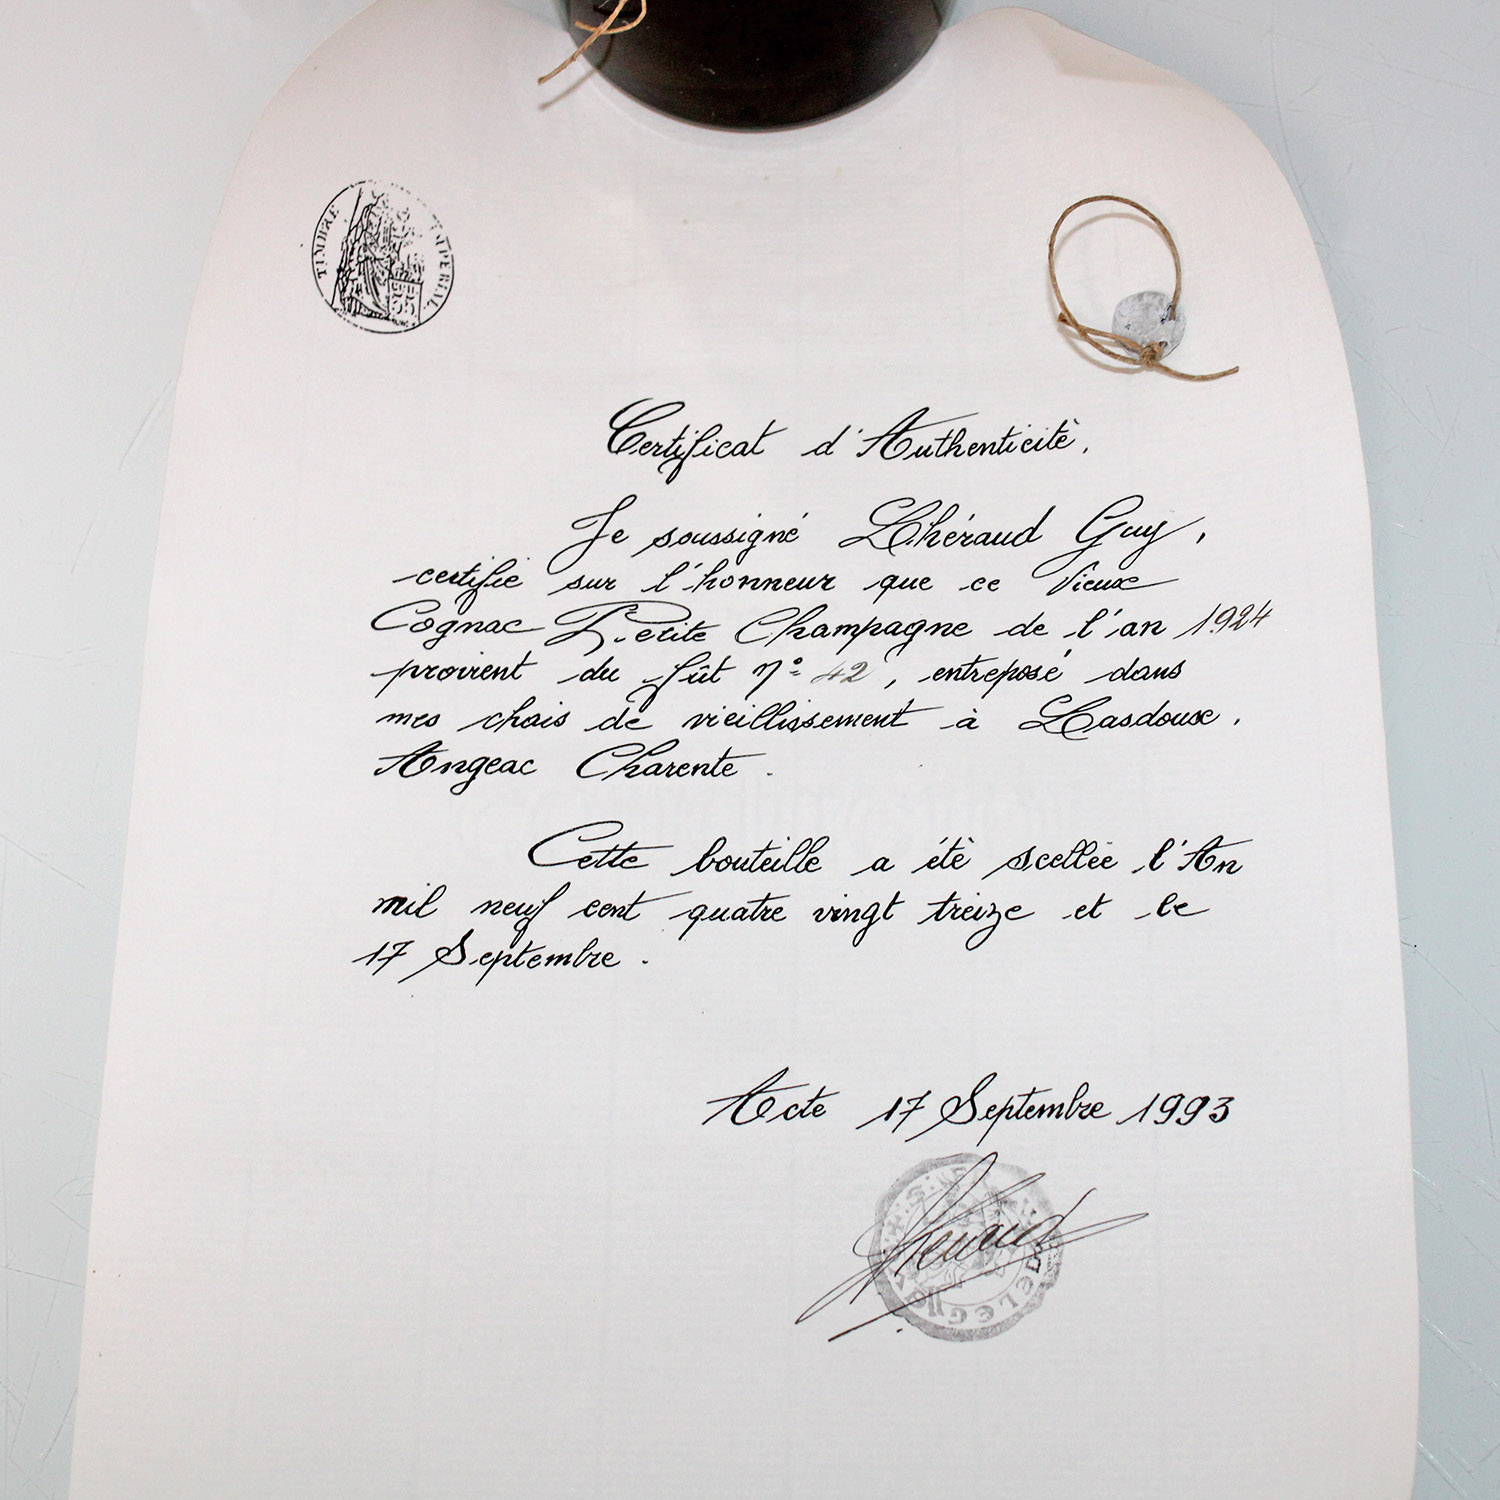 TIMBRE IMPERIAL
Certificat d'Authenticité.
Je soussigné Lhéraud Guy,
certifie sur l'honneur que ce Vieux
Cognac Petite Champagne de l'an 1924
provient du fût n° 42, entreposé dans
mes chais de vieillissement à Lasdoux.
Angeac Charente.
Cette bouteille a été scellée l'An
mil neuf cent quatre vingt treize et le
17 Septembre.
Acte 17 Septembre 1993